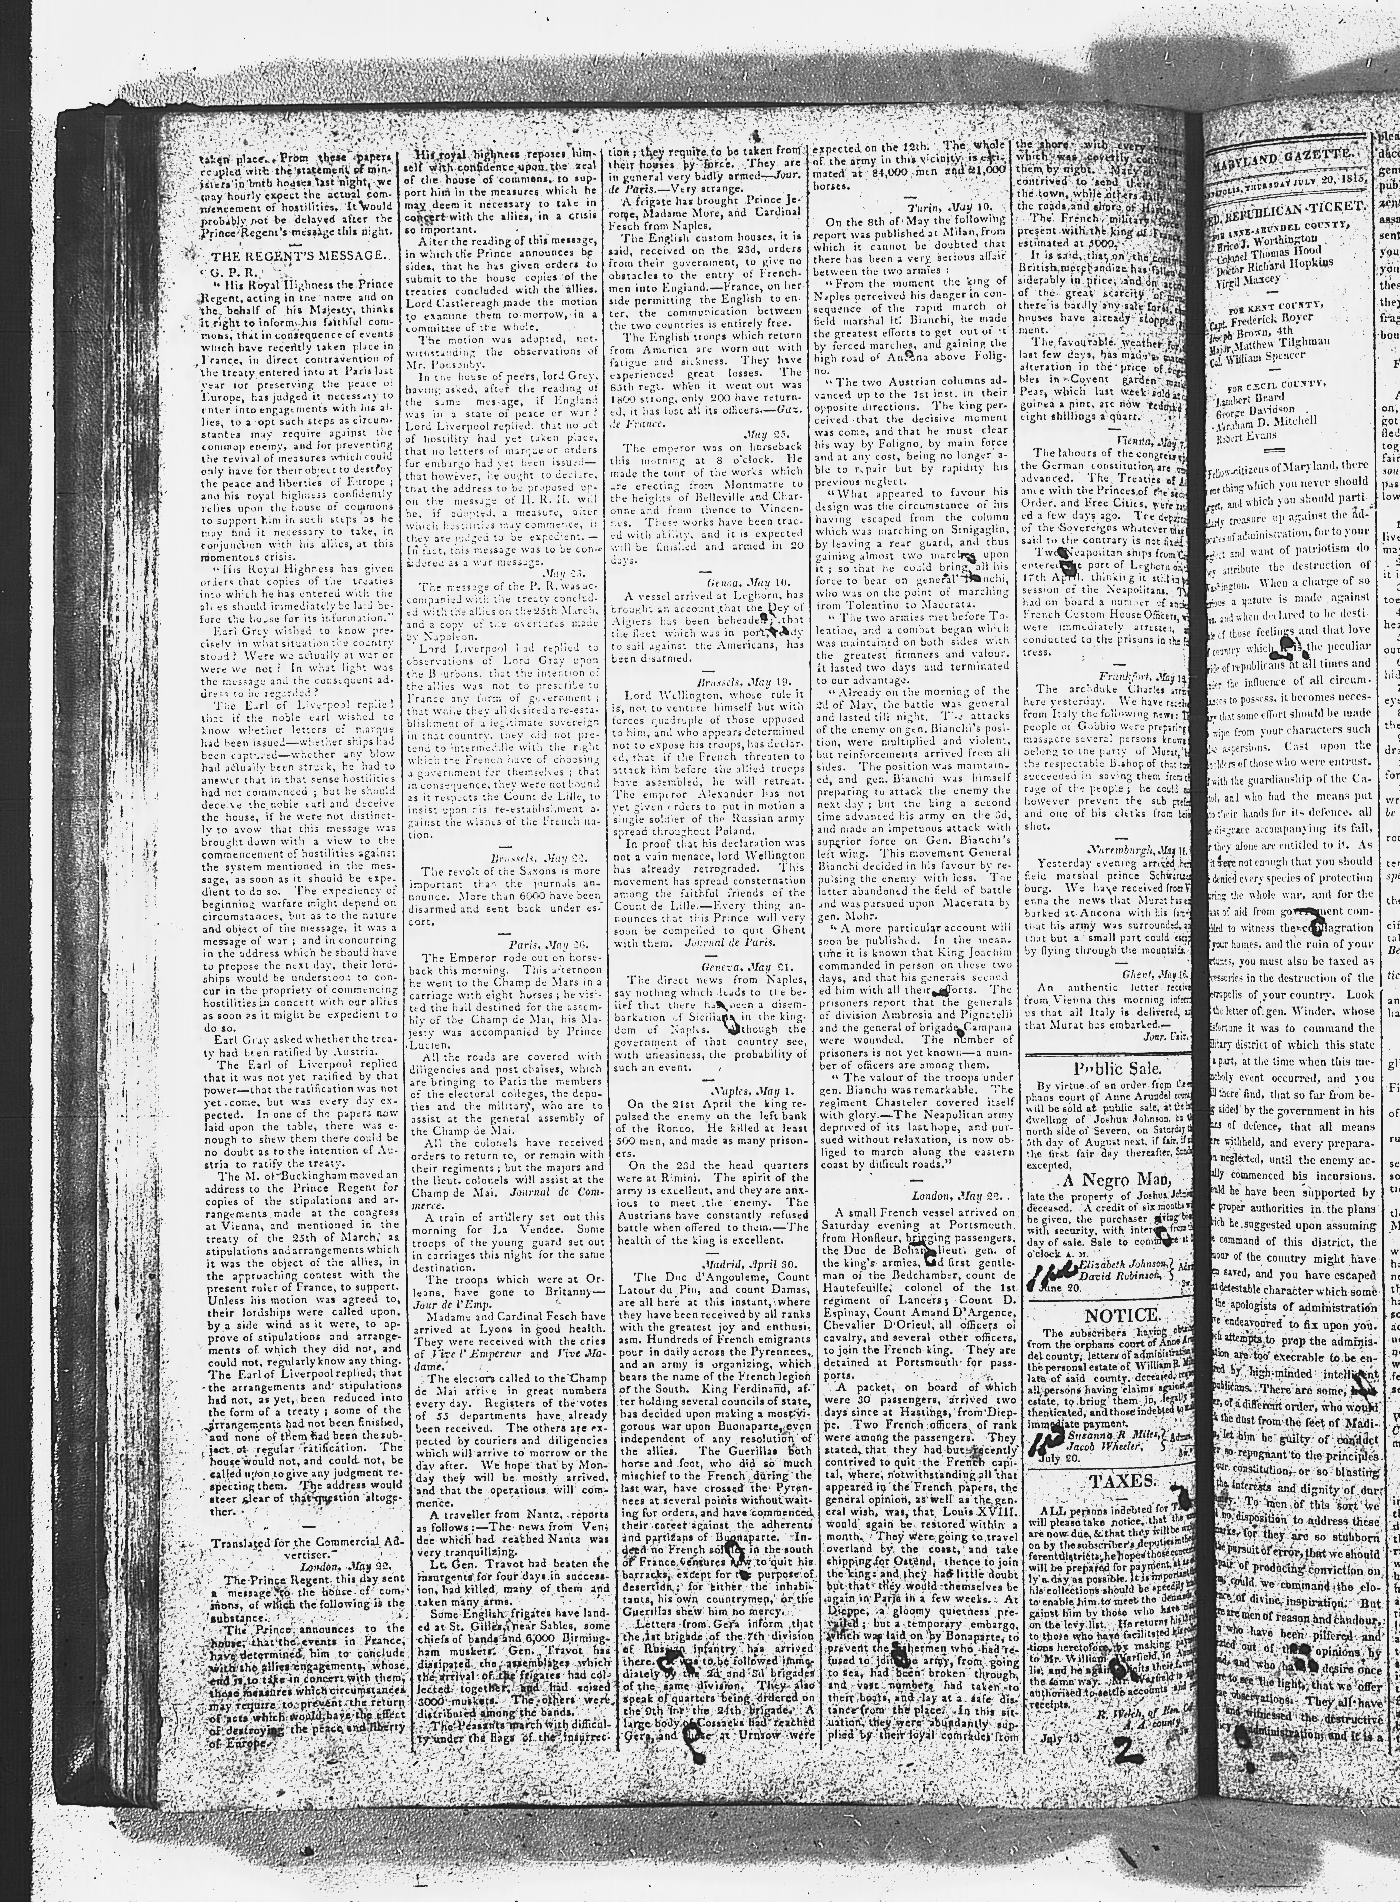 taken place. From these papers,
coupled with the statement of min-
isters in both houses last night, we
may hourly expect the actual com-
mencement of hostilities. It would
probably not be delayed after the
Prince Regent's message this night.
THE REGENT'S MESSAGE.
G. P. R.
"His Royal Highness the Prince
Regent, acting in the name and on
the behalf of his Majesty, thinks
it right to inform his faithful com-
mons, that in consequence of events
which have recently taken place in
France, in direct contravention of
the treaty entered into at Paris last
year for preserving the peace of
Europe, has judged it necessary to
enter into engagements with his al-
lies, to adopt such steps as circum-
stances may require against the
common enemy, and for preventing
the revival of measures which could
only have for their object to destroy
the peace and liberties of Europe;
and his royal highness confidently
relies upon the house of commons
to support him in such steps as he
may find it necessary to take, in
conjunction with his allies, at this
momentous crisis.
"His Royal Highness has given
orders that copies of the treaties
into which he has entered with the
allies should immediately be laid be-
fore the house for its information."
Earl Grey wished to know pre-
cisely in what situation the country
stood? Were we actually at war or
were we not? In what light was
the message and the consequent ad-
dress to be regarded?
The Earl of Liverpool replied
that if the noble earl wished to
know whether letters of marque
had been issued—whether ships had
been captured—whether any blow
had actually been struck, he had to
answer that in that sense hostilities
had not commenced; but he should
deceive the noble earl and deceive
the house, if he were not distinct-
ly to avow that this message was
brought down with a view to the
commencement of hostilities against
the system mentioned in the mes-
sage, as soon as it should be expe-
dient to do so. The expediency of
beginning warfare might depend on
circumstances, but as to the nature
and object of the message, it was a
message of war; and in concurring
in the address which he should have
to propose the next day, their lord-
ships would be understood to con-
cur in the propriety of commencing
hostilities in concert with our allies
as soon as it might be expedient to
do so.
Earl Gray asked whether the trea-
ty had been ratified by Austria.
The Earl of Liverpool replied
that it was not yet ratified by that
power—that the ratification was not
yet come, but was every day ex-
pected. In one of the papers now
laid upon the table, there was e-
nough to shew them there could be
no doubt as to the intention of Au-
stria to ratify the treaty.
The M. of Buckingham moved an
address to the Prince Regent for
copies of the stipulations and ar-
rangements made at the congress
at Vienna, and mentioned in the
treaty of the 25th of March, as
stipulations and arrangements which
it was the object of the allies, in
the approaching contest with the
present ruler of France, to support.
Unless his motion was agreed to,
their lordships were called upon,
by a side wind as it were, to ap-
prove of stipulations and arrange-
ments of which they did not, and
could not, regularly know any thing.
The Earl of Liverpool replied, that
the arrangements and stipulations
had not, as yet, been reduced into
the form of a treaty; some of the
arrangements had not been finished,
and none of them had been the sub-
ject of regular ratification. The
house would not, and could not, be
called upon to give any judgment re-
specting them. The address would
steer clear of that question altoge-
ther.
Translated for the Commercial Ad-
vertiser.
London, May 22.
The Prince Regent this day sent
a message to the house of com-
mons, of which the following is the
substance.
The Prince announces to the
house, that the events in France,
have determined him to conclude
with the allies engagements, whose
end is to take in concert with them,
those measures which circumstances
may require to prevent the return
of acts which would have the effect
of destroying the peace and liberty
of Europe.
His royal highness reposes him-
self with confidence upon the zeal
of the house of commons, to sup-
port him in the measures which he
may deem it necessary to take in
concert with the allies, in a crisis
so important.
After the reading of this message,
in which the Prince announces be-
sides, that he has given orders to
submit to the house copies of the
treaties concluded with the allies.
Lord Castlereagh made the motion
to examine them to-morrow, in a
committee of the whole.
The motion was adopted, not-
withstanding the observations of
Mr. Ponsonby.
In the house of peers, lord Grey,
having asked, after the reading of
the same message, if England
was in a state of peace or war?
Lord Liverpool replied, that no act
of hostility had yet taken place,
that no letters of marque or orders
for embargo had yet been issued—
that however, he ought to declare,
that the address to be proposed up-
on the message of H. R. H. will
be, if adopted, a measure, after
which hostilities may commence, if
they are judged to be expedient.—
In fact, this message was to be con-
sidered as a war message.
May 23.
The message of the P. R. was ac-
companied with the treaty conclud-
ed with the allies on the 25th March,
and a copy of the overtures made
by Napoleon.
Lord Liverpool had replied to
observations of Lord Gray upon
the Bourbons, that the intention of
the allies was not to prescribe to
France any form of government;
that while they all desired a re-esta-
blishment of a legitimate sovereign
in that country, they did not pre-
tend to intermeddle with the right
which the French have of choosing
a government for themselves; that
in consequence, they were not bound
as it respects the Count de Lille, to
insist upon his re-establishment a-
gainst the wishes of the French na-
tion.
Brussels, May 22.
The revolt of the Saxons is more
important than the journals an-
nounce. More than 6000 have been
disarmed and sent back under es-
cort.
Paris, May 26.
The Emperor rode out on horse-
back this morning. This afternoon
he went to the Champ de Mars in a
carriage with eight horses; he visi-
ted the hall destined for the assem-
bly of the Champ de Mai, his Ma-
jesty was accompanied by Prince
Lucien.
All the roads are covered with
diligencies and post chaises, which
are bringing to Paris the members
of the electoral colleges, the depu-
ties and the military, who are to
assist at the general assembly of
the Champ de Mai.
All the colonels have received
orders to return to, or remain with
their regiments; but the majors and
the lieut. colonels will assist at the
Champ de Mai. Journal de Com-
merce.
A train of artillery set out this
morning for La Vendee. Some
troops of the young guard set out
in carriages this night for the same
destination.
The troops which were at Or-
leans, have gone to Britanny—
Jour de l'Emp.
Madame and Cardinal Fesch have
arrived at Lyons in good health.
They were received with the cries
of Vive l'Empereur and Vive Ma-
dame.
The electors called to the Champ
de Mai arrive in great numbers
every day. Registers of the votes
of 55 departments have already
been received. The others are ex-
pected by couriers and diligencies
which will arrive to morrow or the
day after. We hope that by Mon-
day they will be mostly arrived,
and that the operations will com-
mence.
A traveller from Nantz, reports
as follows:—The news from Ven-
dee which had reached Nantz was
very tranquilizing.
Lt. Gen. Travot had beaten the
insurgents for four days in succes-
sion, had killed many of them and
taken many arms.
Some English frigates have land-
ed at St. Gilles, near Sables, some
chiefs of bands and 6,000 Birming-
ham muskets. Gen. Travot has
dissipated the assemblages which
the arrival of the frigates had col-
lected together, and had seized
3000 muskets. The others were
distributed among the bands.
The Peasants march with difficul-
ty under the flags of the insurrec-
tion; they require to be taken from
their houses by force. They are
in general very badly armed—Jour.
de Paris.—Very strange.
A frigate has brought Prince Je-
rome, Madame More, and Cardinal
Fesch from Naples.
The English custom houses, it is
said, received on the 23d, orders
from their government, to give no
obstacles to the entry of French-
men into England.—France, on her
side permitting the English to en-
ter, the communication between
the two countries is entirely free.
The English troops which return
from America are worn out with
fatigue and sickness. They have
experienced great losses. The
85th regt. when it went out was
1800 strong, only 200 have return-
ed, it has lost all its officers.—Gaz.
de France.
May 25.
The emperor was on horseback
this morning at 8 o'clock. He
made the tour of the works which
are erecting from Montmatre to
the heights of Belleville and Char-
onne and from thence to Vincen-
nes. These works have been trac-
ed with ability, and it is expected
will be finished and armed in 20
days.
Genoa, May 10.
A vessel arrived at Leghorn, has
brought an account that the Dey of
Algiers has been beheaded, that
the fleet which was in port
to sail against the Americans, has
been disarmed.
Brussels, May 19.
Lord Wellington, whose rule it
is, not to venture himself but with
forces quadruple of those opposed
to him, and who appears determined
not to expose his troops, has declar-
ed, that if the French threaten to
attack him before the allied troops
have assembled, he will retreat.
The emperor Alexander has not
yet given orders to put in motion a
single soldier of the Russian army
spread throughout Poland.
In proof that his declaration was
not a vain menace, lord Wellington
has already retrograded. This
movement has spread consternation
among the faithful friends of the
Count de Lille.—Every thing an-
nounces that this Prince will very
soon be compelled to quit Ghent
with them. Journal de Paris.
Geneva, May 21.
The direct news from Naples,
say nothing which leads to the be-
lief that there has been a disem-
barkation of Sicilians in the king-
dom of Naples. Although the
government of that country see,
with uneasiness, the probability of
such an event.
Naples, May 1.
On the 21st April the king re-
pulsed the enemy on the left bank
of the Ronco. He killed at least
500 men, and made as many prison-
ers.
On the 23d the head quarters
were at Rimini. The spirit of the
army is excellent, and they are anx-
ious to meet the enemy. The
Austrians have constantly refused
battle when offered to them.—The
health of the king is excellent.
Madrid, April 30.
The Duc d'Angouleme, Count
Latour du Pin, and count Damas,
are all here at this instant, where
they have been received by all ranks
with the greatest joy and enthusi-
asm. Hundreds of French emigrants
pour in daily across the Pyrennees,
and an army is organizing, which
bears the name of the French legion
of the South. King Ferdinand, af-
ter holding several councils of state,
has decided upon making a most vi-
gorous war upon Buonaparte, even
independent of any resolution of
the allies. The Guerillas both
horse and foot, who did so much
mischief to the French during the
last war, have crossed the Pyren-
nees at several points without wait-
ing for orders, and have commenced
their career against the adherents
and partizans of Buonaparte. In-
deed no French soldier in the south
of France ventures now to quit his
barracks, except for purpose of
desertion; for either the inhabi-
tants, his own countrymen, or the
Guerillas shew him no mercy.
Letters from Gera inform that
the 1st brigade of the 7th division
of Russian infantry has arrived
there. was to be followed imme-
diately by the 2d and 3d brigades
of the same division. They also
speak of quarters being ordered on
the 9th for the 24th brigade. A
large body of Cossacks had reached
Gera, and at Urnsow were
expected on the 12th. The whole
of the army in this vicinity is esti-
mated at 84,000 men and 21,000
horses.
Turin, May 10.
On the 8th of May the following
report was published at Milan, from
which it cannot be doubted that
there has been a very serious affair
between the two armies:
"From the moment the king of
Naples perceived his danger in con-
sequence of the rapid march of
field marshal lt. Bianchi, he made
the greatest efforts to get out of it
by forced marches, and gaining the
high road of Ancona above Folig-
no.
"The two Austrian columns ad-
vanced up to the 1st inst. in their
opposite directions. The king per-
ceived that the decisive moment
was come, and that he must clear
his way by Foligno, by main force
and at any cost, being no longer a-
ble to repair but by rapidity his
previous neglect.
"What appeared to favour his
design was the circumstance of his
having escaped from the column
which was marching on Sinigaglin,
by leaving a rear guard, and thus
gaining almost two marches upon
it; so that he could bring all his
force to bear on general Bianchi,
who was on the point of marching
from Tolentino to Macerata.
"The two armies met before To-
leatino, and a combat began which
was maintained on both sides with
the greatest firmness and valour.
It lasted two days and terminated
to our advantage.
"Already on the morning of the
2d of May, the battle was general
and lasted till night. The attacks
of the enemy on gen. Bianchi's posi-
tion, were multiplied and violent,
but reinforcements arrived from all
sides. The position was maintain-
ed, and gen. Bianchi was himself
preparing to attack the enemy the
next day; but the king a second
time advanced his army on the 3d,
and made an impetuous attack with
superior force on Gen. Bianchi's
left wing. This movement General
Bianchi decided in his favour by re-
pulsing the enemy with less. The
latter abandoned the field of battle
and was pursued upon Macerata by
gen. Mohr.
"A more particular account will
soon be published. In the mean-
time it is known that King Joachim
commanded in person on these two
days, and that his generals second-
ed him with all their efforts. The
prisoners report that the generals
of division Ambrosia and Pignatelli
and the general of brigade Campana
were wounded. The number of
prisoners is not yet known—a num-
ber of officers are among them.
"The valour of the troops under
gen. Bianchi was remarkable. The
regiment Chasteler covered itself
with glory.—The Neapolitan army
deprived of its last hope, and pur-
sued without relaxation, is now ob-
liged to march along the eastern
coast by difficult roads."
London, May 22.
A small French vessel arrived on
Saturday evening at Portsmouth,
from Honfleur, bringing passengers,
the Duc de lieut. gen. of
the king's armies, and first gentle-
man of the Bedchamber, count de
Hautefeuille, colonel of the 1st
regiment of Lancers; Count D.
Espinay, Count Amand D'Argence,
Chevalier D'Orieul, all officers of
cavalry, and several other officers,
to join the French king. They are
detained at Portsmouth for pass-
ports.
A packet, on board of which
were 30 passengers, arrived two
days since at Hastings, from Diep-
pe. Two French officers of rank
were among the passengers. They
stated, that they had but recently
contrived to quit the French capi-
tal, where, notwithstanding all that
appeared in the French papers, the
general opinion, as well as the gen-
eral wish, was, that Louis XVIII.
would again be restored within a
month. They were going to travel
overland by the coast, and take
shipping for Ostend, thence to join
the king: and they had little doubt
but that they would themselves be
again in Paris in a few weeks. At
Dieppe, a gloomy quietness pre-
vailed; but a temporary embargo,
which was laid on by Bonaparte, to
prevent the fishermen who had re-
fused to join the army, from going
to sea, had been broken through,
and vast numbers had taken to
their boats, and lay at a safe dis-
tance from the place. In this sit-
uation, they were abundantly sup-
plied by their loyal comrades from
the shore with every
which was covertly conveyed
them by night. Many
contrived to send their
the town, while others daily
the roads and shore of
The French military
present with the king of France
estimated at 5000.
It is said, that on the
British merchandize has fallen
siderably in price, and on account
of the great scarcity of
there is hardly any sale for it,
houses have already stopped
ment.
The favourable weather for
last few days, has made a
alteration in the price of vege-
bles in Covent garden
Peas, which last week sold at
guinea a pint, are now reduced
eight shillings a quart.
Vienna, May 7.
The labours of the congress
the German constitution, are
advanced. The Treaties of
ance with the Princes of the
Order, and Free Cities, were
ed a few days ago. The depar-
of the Sovereigns whatever
said to the contrary is not fixed.
Two Neapolitan ships from
entered the port of Leghorn on
17th April, thinking it still in
session of the Neapolitans. They
had on board a number of
French Custom House Officers,
were immediately arrested,
conducted to the prisons in the
tress.
Frankfort, May
The archduke Charles
here yesterday. We have received
from Italy the following news:
people of Gobbio were preparing
massacre several persons known
belong to the party of Murat,
the respectable Bishop of that
succeeded in saving them from
rage of the people; he could
however prevent the sub prefect
and one of his clerks from being
shot.
Nuremburgh, May
Yesterday evening arrived here
field marshal prince Schwartzen-
burg. We have received from Vi-
enna the news that Murat has em-
barked at Ancona with his family
that his army was surrounded,
that but a small part could escape
by flying through the mountains.
Ghent, May 16.
An authentic letter received
from Vienna this morning informs
us that all Italy is delivered,
that Murat has embarked.—
Jour. Univ.
Public Sale.
By virtue of an order from the
phans court of Anne Arundel county
will be sold at public sale, at the
dwelling of Joshua Johnson, on
north side of Severn, on Saturday
5th day of August next, if fair, if
the first fair day thereafter, Sunday
excepted,
A Negro Man,
late the property of Joshua Johnson
deceased. A credit of six months
be given, the purchaser giving bond
with security, with interest from
day of sale. Sale to commence at
o'clock A. M.
Elizabeth Johnson,
David Robinson,
June 20.
NOTICE.
The subscribers having obtained
from the orphans court of Anne Arun-
del county, letters of administration
the personal estate of William R.
late of said county, deceased, request
all persons having claims against
estate, to bring them in, legally
thenticated, and those indebted to
immediate payment.
Susanna R Miles,
Jacob Wheeler,
July 20.
TAXES.
ALL persons indebted for
will please take notice, that the
are now due, & that they will be
on by the subscriber's deputies in the
ferent districts, he hopes those
will be prepared for payment, as
ly a day as possible. It is important
his collections should be speedily
to enable him to meet the demands
gainst him by those who have
on the levy list. He returns his
to those who have facilitated
tions heretofore, by making
to Mr. William Warfield, in
lis, and he again their
the same way. Mr. Warfield is
authorised to settle accounts and
receipts.
R. Welch, of Ben.
A. A. county.
July 13.
2
MARYLAND GAZETTE.
THURSDAY JULY 20, 1815.
REPUBLICAN TICKET.
FOR ANNE-ARUNDEL COUNTY,
Brice J. Worthington
Colonel Thomas Hood
Doctor Richard Hopkins
Virgil Maxcey
FOR KENT COUNTY,
Capt. Frederick Boyer
Joseph Brown, 4th
Major Matthew Tilghman
Col. William Spencer
FOR CECIL COUNTY,
Lambert Beard
George Davidson
Abraham D. Mitchell
Robert Evans
Fellow-citizens of Maryland, there
thing which you never should
and which you should parti-
treasure up against the ad-
of administration, for to your
and want of patriotism do
attribute the destruction of
Washington. When a charge of so
a nature is made against
and when declared to be desti-
of those feelings and that love
country which is the peculiar
of republicans at all times and
the influence of all circum-
to possess, it becomes neces-
that some effort should be made
wipe from your characters such
aspersions. Cast upon the
of those who were entrust-
with the guardianship of the Ca-
and who had the means put
their hands for its defence, all
disgrace accompanying its fall,
they alone are entitled to it. As
were not enough that you should
denied every species of protection
during the whole war, and for the
of aid from government com-
to witness the conflagration
your homes, and the ruin of your
you must also be taxed as
in the destruction of the
metropolis of your country. Look
the letter of gen. Winder, whose
it was to command the
military district of which this state
a part, at the time when this me-
event occurred, and you
there find, that so far from be-
aided by the government in his
of defence, that all means
withheld, and every prepara-
neglected, until the enemy ac-
commenced his incursions.
he have been supported by
proper authorities in the plans
he suggested upon assuming
command of this district, the
of the country might have
saved, and you have escaped
detestable character which some
the apologists of administration
endeavoured to fix upon you.
attempts to prop the adminis-
are too execrable to be en-
by high-minded intelligent
There are some,
of a different order, who would
the dust from the feet of Madi-
let him be guilty of conduct
so repugnant to the principles
constitution, or so blasting
the interests and dignity of our
To men of this sort we
no disposition to address these
for they are so stubborn
pursuit of error, that we should
of producing conviction on
could we command the elo-
of divine inspiration. But
are men of reason and candour,
who have been pilfered and
out of their opinions by
and who have a desire once
to see the light, that we offer
observations. They all have
witnessed the destructive
administration, and it is a